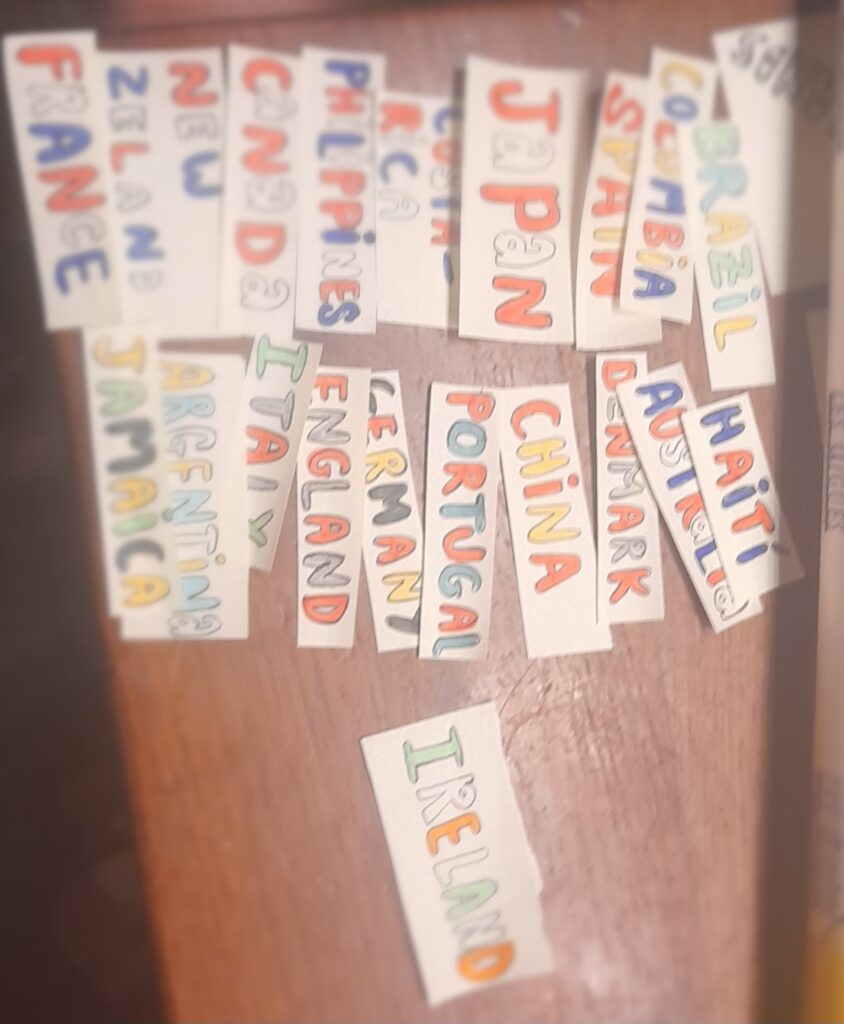 FRANCE
NEW
ZELAND
CaNaDa
PHiLiPPiNES
COSTA-
RiCA
JapaN
SPAiN
COLOMBiA
BRAZiL
JAMAiCA
ARGENTiNa
ITALY
ENGLAND
GERMANY
PORTUGAL
CHiNA
DENMARK
AUSTRaLia
HAiTi
IRELAND